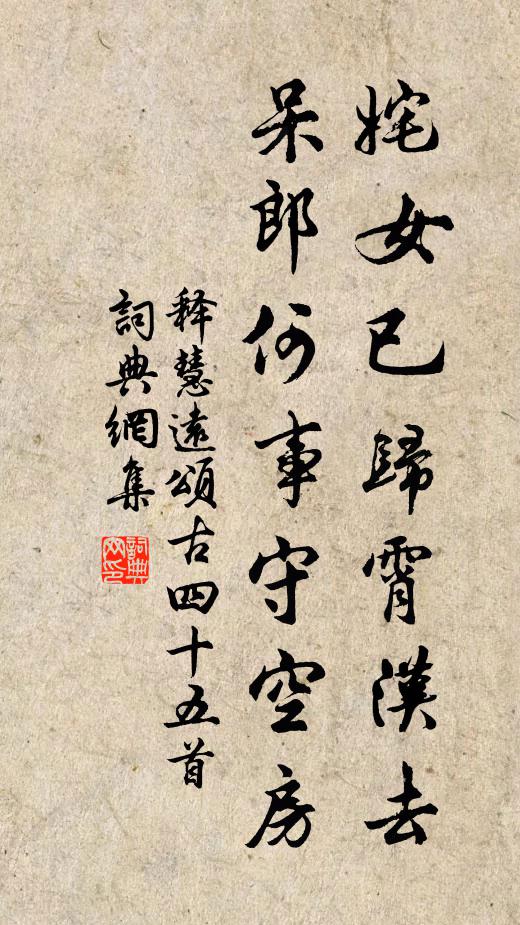 姹女已歸霄漢去
呆郎何事守空房
释慧遠頌古四十五首
詞典網集
詞典
网印